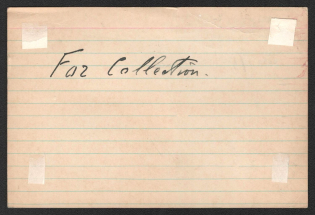 For Collection.